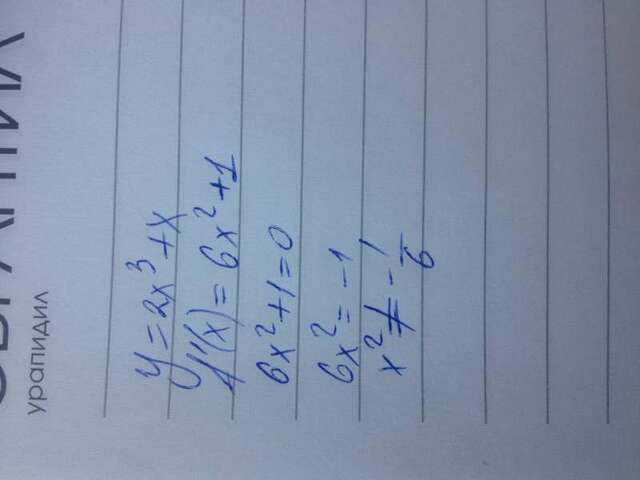 урапидил
y = 2x³ + x
f'(x) = 6x² + 1
6x² + 1 = 0
6x² = -1
x² ≠ -1/6